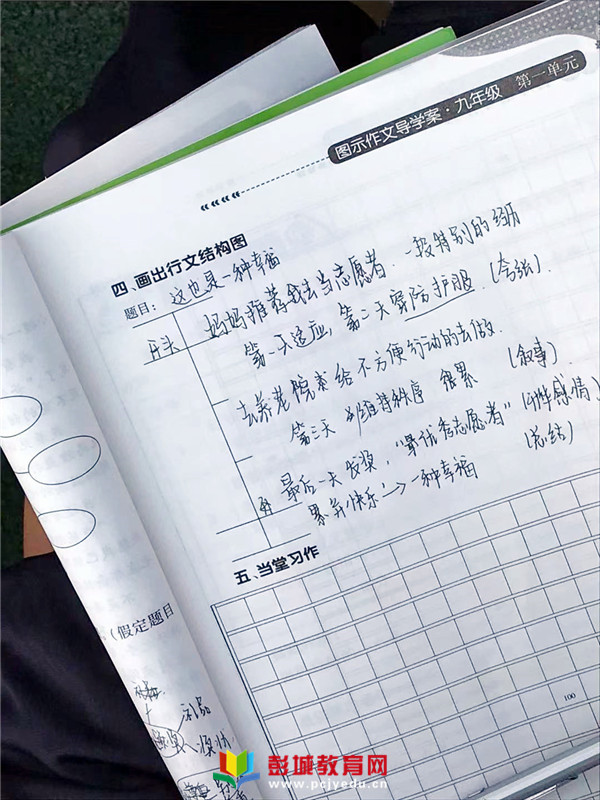 图示作文导学案·九年级 第一单元
四、画出行文结构图
题目：这也是一种幸福
开头 妈妈推荐我去当志愿者，一段特别的经历
第一天适应，第二天穿防护服（夸张）.
去养老院来给不方便行动的去做.
第三天 维持秩序 很累 （叙事）.
最后一天发奖，“最优秀志愿者”（感情）
累并快乐→一种幸福 （总结）
五、当堂习作
（假定题目
100
彭城教育网
www.pcjyedu.com